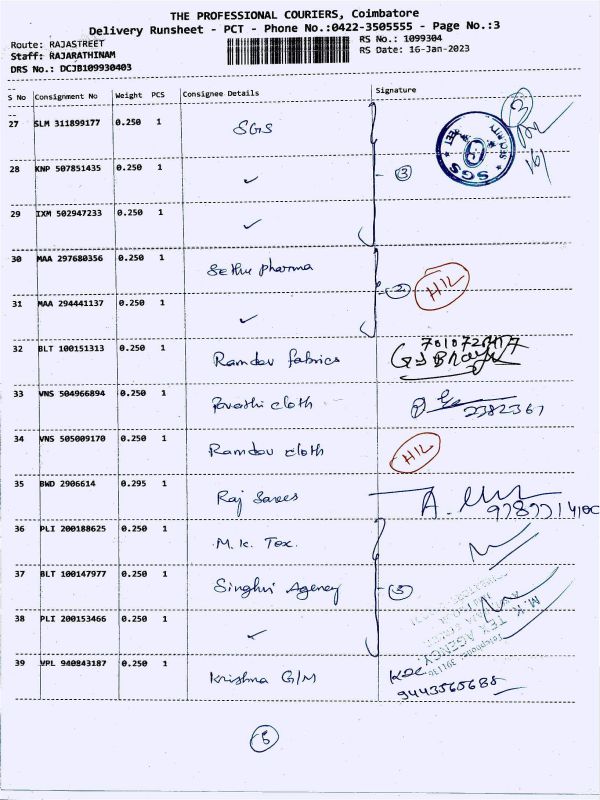 THE PROFESSIONAL COURIERS, Coimbatore
Delivery Runsheet - PCT - Phone No.:0422-3505555 - Page No.:3
Route: RAJASTREET
Staff: RAJARATHINAM
DRS No.: DCJB109930403
RS No.: 1099304
RS Date: 16-Jan-2023
S No Consignment No Weight PCS Consignee Details Signature
27 SLM 311899177 0.250 1 SGS
28 KNP 507851435 0.250 1 ✓ 3
29 IXM 502947233 0.250 1 ✓
30 MAA 297680356 0.250 1 Sethu pharma
31 MAA 294441137 0.250 1 ✓ 2 H1L
32 BLT 100151313 0.250 1 Ramdev fabrics
33 VNS 504966894 0.250 1 cloth 2382367
34 VNS 505009170 0.250 1 Ramdev cloth H1L
35 BWD 2906614 0.295 1 Raj Sarees A.
36 PLI 200188625 0.250 1 M.K. Tex.
37 BLT 100147977 0.250 1 Singhvi Agency
M. K. TEX AGENCY
38 PLI 200153466 0.250 1 ✓
39 VPL 940843187 0.250 1 Krishna G/M 9443565688
5